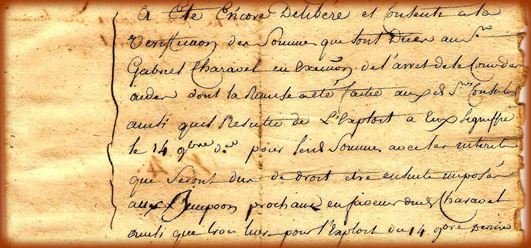 A Eté Encore Deliberé et Consenti a la
Veriffication des Sommes que sont Dues au Sr
Gabriel Charavel en Execution de l'arret de la Cour des
aides dont la Remise a eté faite aux d Srs Consuls
ainsi quil Resulte de L'Exploit a Eux Signiffié
le 14 9bre dr pour les Sommes avec les interets
que Seront dus de droit etre ensuite imposés
aux prochaine en faveur dud Charavel
ainsi que trois livres pour l'Exploit du 14 9bre dernier